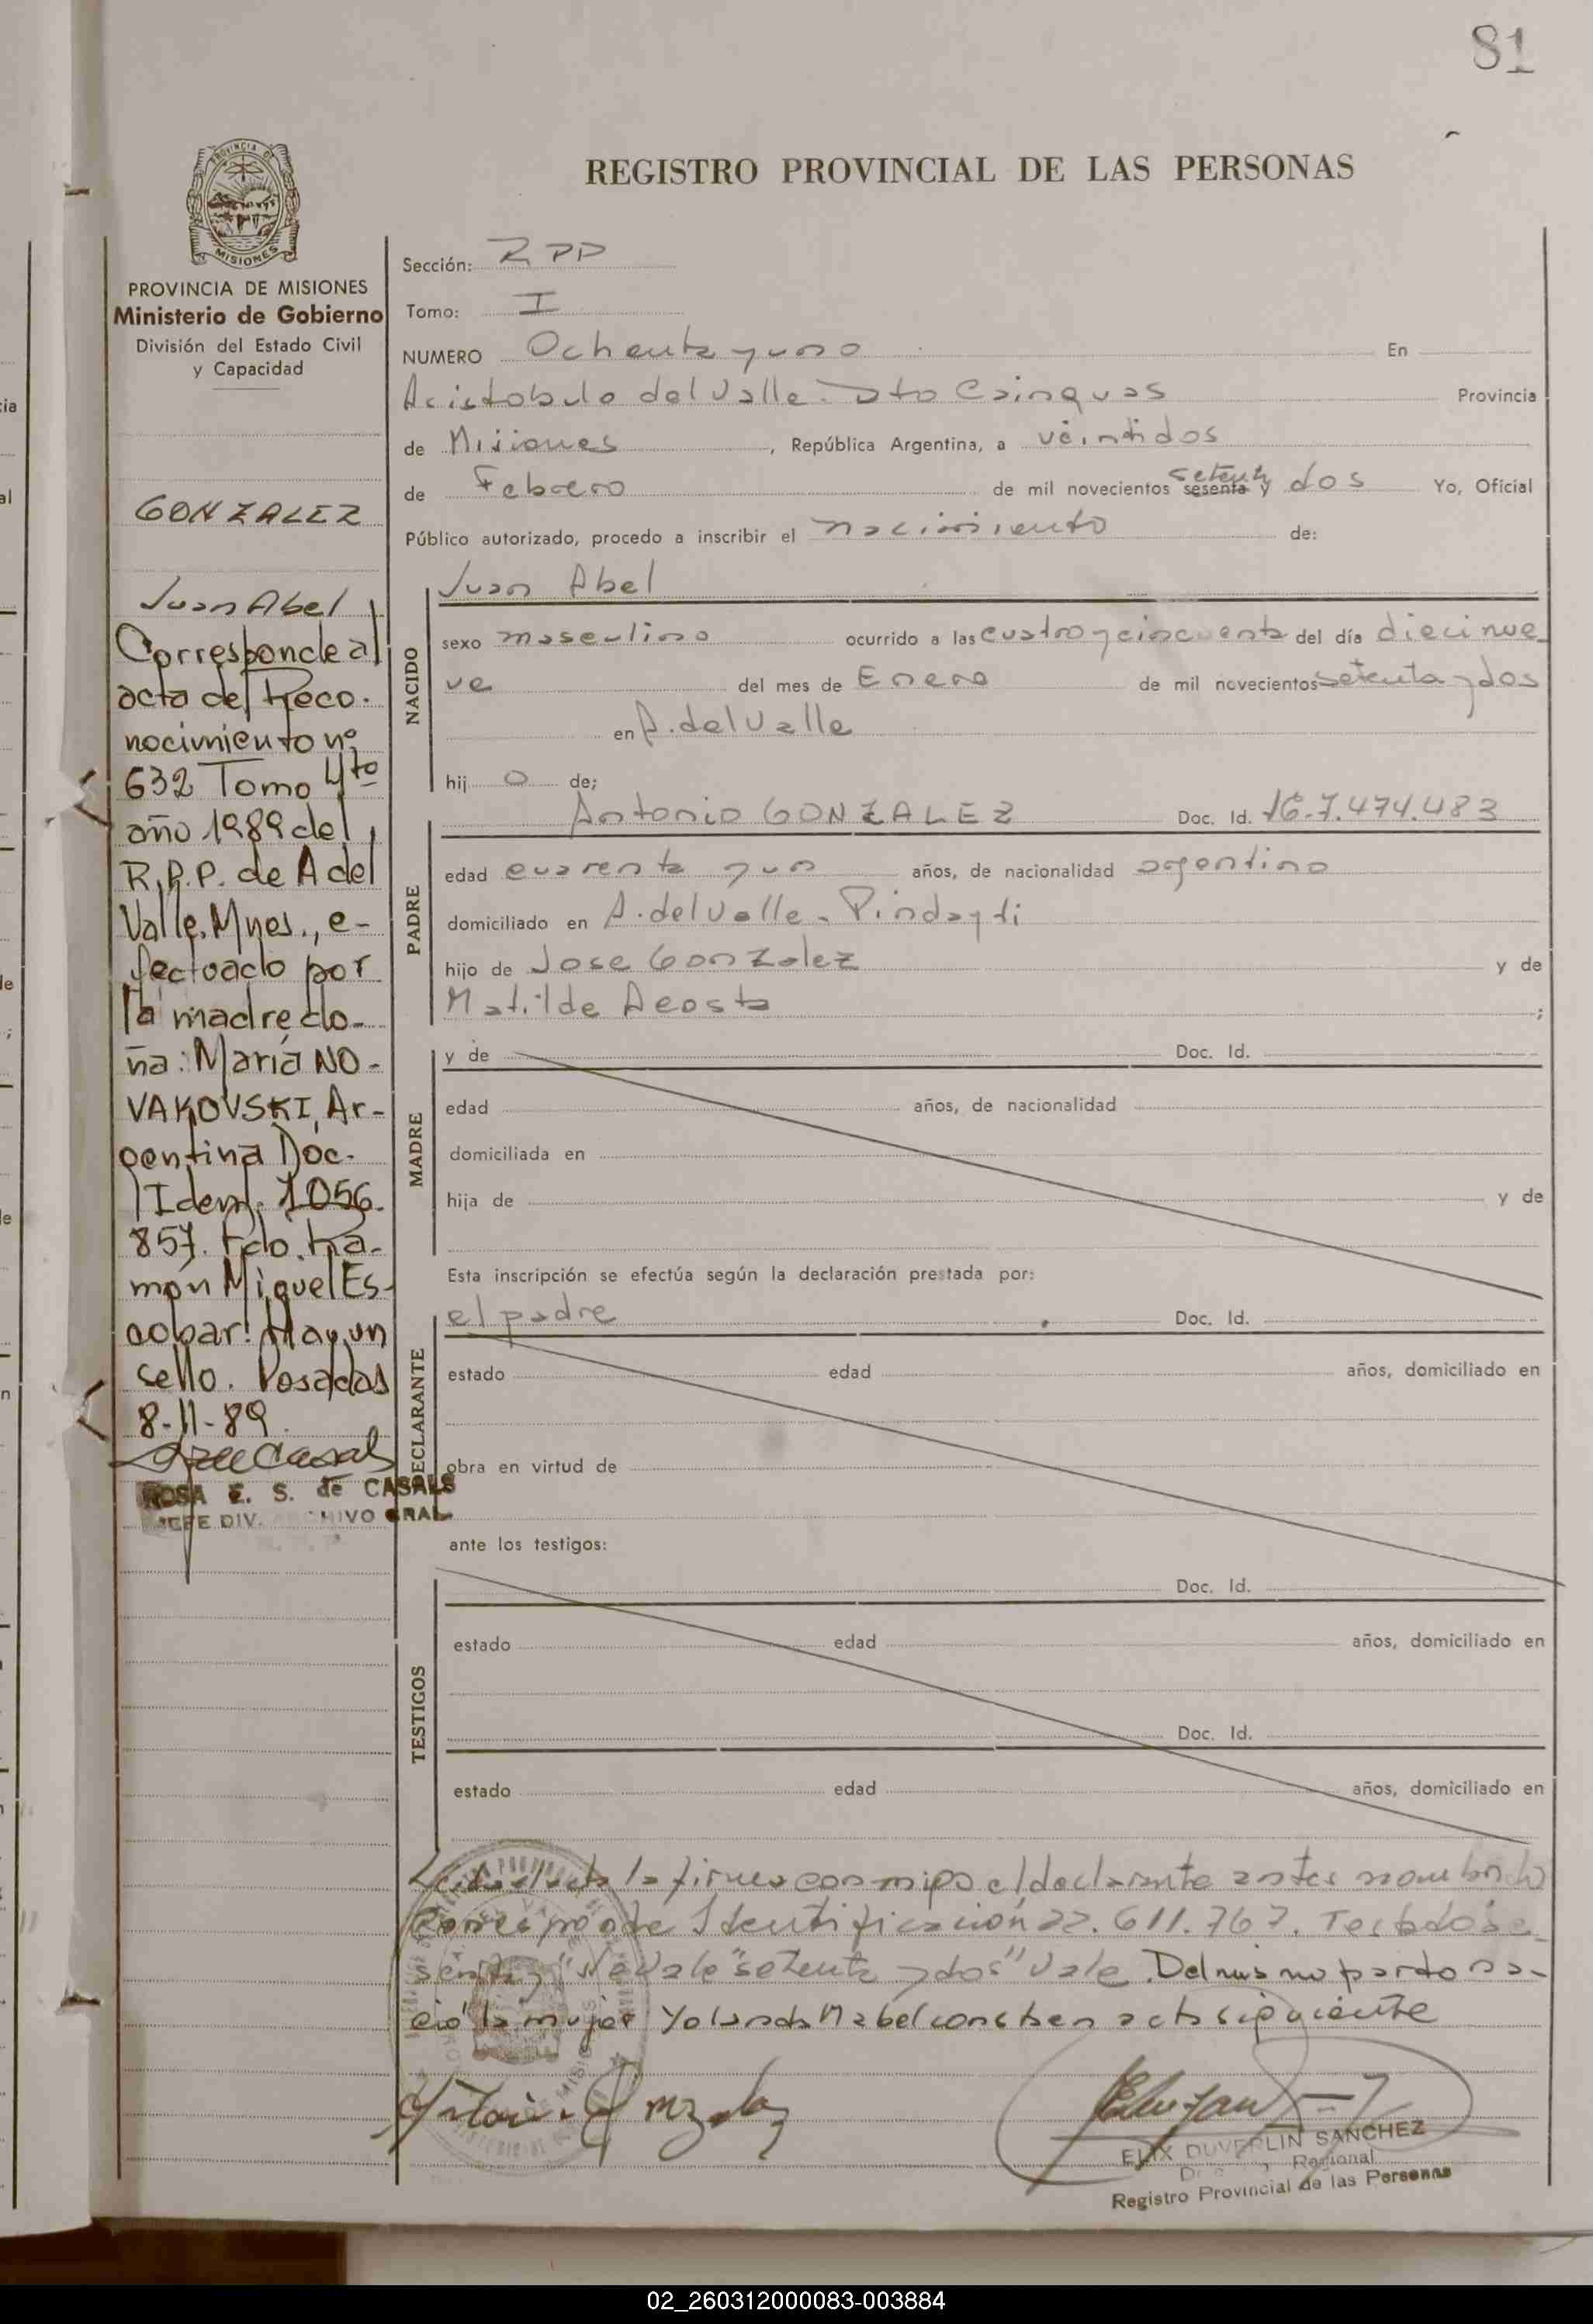 81
REGISTRO PROVINCIAL DE LAS PERSONAS
PROVINCIA DE
MISIONES
PROVINCIA DE MISIONES
Ministerio de Gobierno
División del Estado Civil
y Capacidad
GONZALEZ
Juan Abel
Corresponde al
acta de Reco-
nocimiento nº
632 Tomo 4to
año 1989 del
R.P.P. de A del
Valle, Mnes., e-
fectuado por
la madre do-
ña: María NO-
VAKOVSKI, Ar-
gentina Doc.
Ident. 1.056.
857. Fdo. Ra-
món Miguel Es-
cobar. Hay un
sello. Posadas
8-11-89.
ROSA E. S. de CASALS
JEFE DIV. ARCHIVO GRAL
Sección: RPP
Tomo: I
NUMERO Ochenta y uno En
Aristobulo del Valle. Dto Cainguas Provincia
de Misiones, República Argentina, a veintidos
de Febrero de mil novecientos sesenta y setenta y dos Yo, Oficial
Público autorizado, procedo a inscribir el nacimiento de:
NACIDO
Juan Abel
sexo masculino ocurrido a las cuatro y cincuenta del día diecinue-
ve del mes de Enero de mil novecientos setenta y dos
en A. del Valle
hij o de;
PADRE
Antonio GONZALEZ Doc. Id. 7.474.483
edad cuarenta y un años, de nacionalidad argentino
domiciliado en A. del Valle - Pindayti
hijo de Jose Gonzalez y de
Matilde Acosta ;
MADRE
y de Doc. Id.
edad años, de nacionalidad
domiciliada en
hija de y de
Esta inscripción se efectúa según la declaración prestada por:
DECLARANTE
el padre Doc. Id.
estado edad años, domiciliado en
obra en virtud de
ante los testigos:
TESTIGOS
Doc. Id.
estado edad años, domiciliado en
Doc. Id.
estado edad años, domiciliado en
Leida el acta la firma con migo el declarante antes nombrado
Corresponde Identificación 22.611.767. Testado "se
senta y" No vale "setenta y dos" Vale. Del mismo parto na-
ció la mujer Yolanda Mabel consta en acta siguiente
ELIX DUVERLIN SANCHEZ
Regional
Registro Provincial de las Personas
02_260312000083-003884